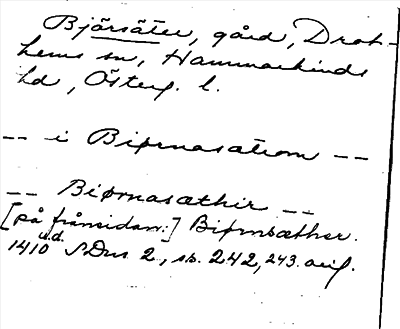 Björsäter, gård, Drot-
hems sn, Hammarkinds
hd, Österg. l.
-- i Biørnasætrom --
-- Biørnasæthir --
[på frånsidan:] Biørnsæther.
u.d.
1410 SDns 2, s. 242, 243. avig.